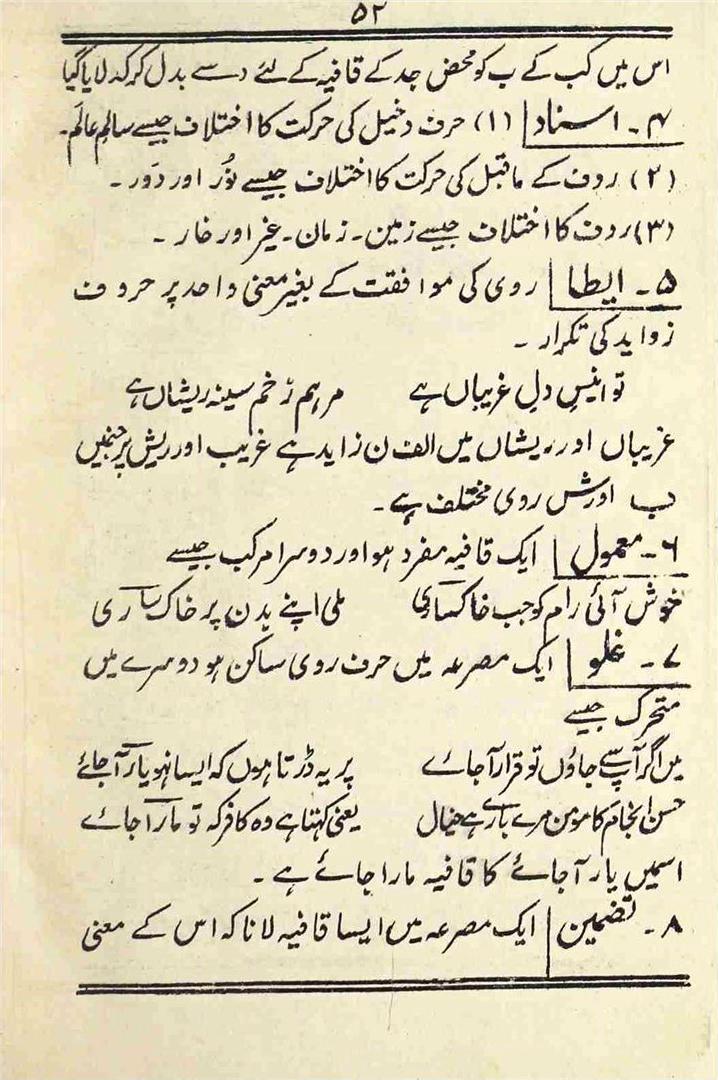 ۵۲
اس میں کب کے ب کو محض جد کے قافیہ کے لئے د سے بدل کر کد لایا گیا
۴۔ اسناد (۱) حرف دخیل کی حرکت کا اختلاف جیسے سالِم عالَم۔
(۲) ردف کے ماقبل کی حرکت کا اختلاف جیسے نُور اور دَور۔
(۳) ردف کا اختلاف جیسے زمین۔ زمان۔ غیر اور غار۔
۵۔ ایطا روی کی موافقت کے بغیر معنی واحد پر حروف
زواید کی تکرار۔
تو انیسِ دلِ غریباں ہے مرہمِ زخم سینہ ریشاں ہے
غریباں اور ریشاں میں الف ن زاید ہے غریب اور ریش پر جنہیں
ب اور ش روی مختلف ہے۔
۶۔ معمول ایک قافیہ مفرد ہو اور دوسرا مرکب جیسے
خوش آئی رام کو جب خاکساری ملی اپنے بدن پر خاک ساری
۷۔ غلو ایک مصرعہ میں حرف روی ساکن ہو دوسرے میں
متحرک جیسے
میں اگر آپ سے جاؤں تو قرار آجائے پر یہ ڈرتا ہوں کہ ایسا نہو یار آجائے
حسن انجام کا مومن مرے بارے ہے خیال یعنی کہتا ہے وہ کافر کہ تو مارا جائے
اسمیں یار آجائے کا قافیہ مارا جائے ہے۔
۸۔ تضمین ایک مصرعہ میں ایسا قافیہ لانا کہ اس کے معنی